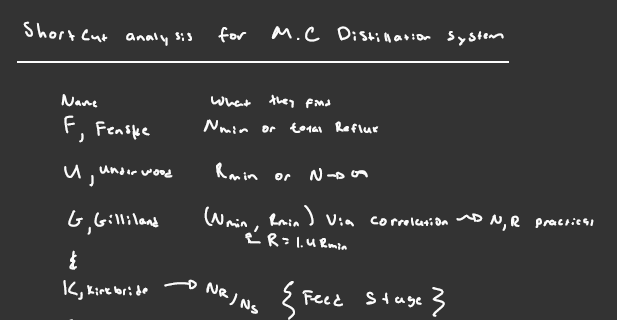 Shortcut analysis for M.C Distillation system
Name What they find
F, Fenske Nmin or total Reflux
U, Underwood Rmin or N→∞
G, Gilliland (Nmin, Rmin) Via correlation → N,R practical
R=1.4Rmin
&
K, Kirkbride → NR/NS {Feed Stage}